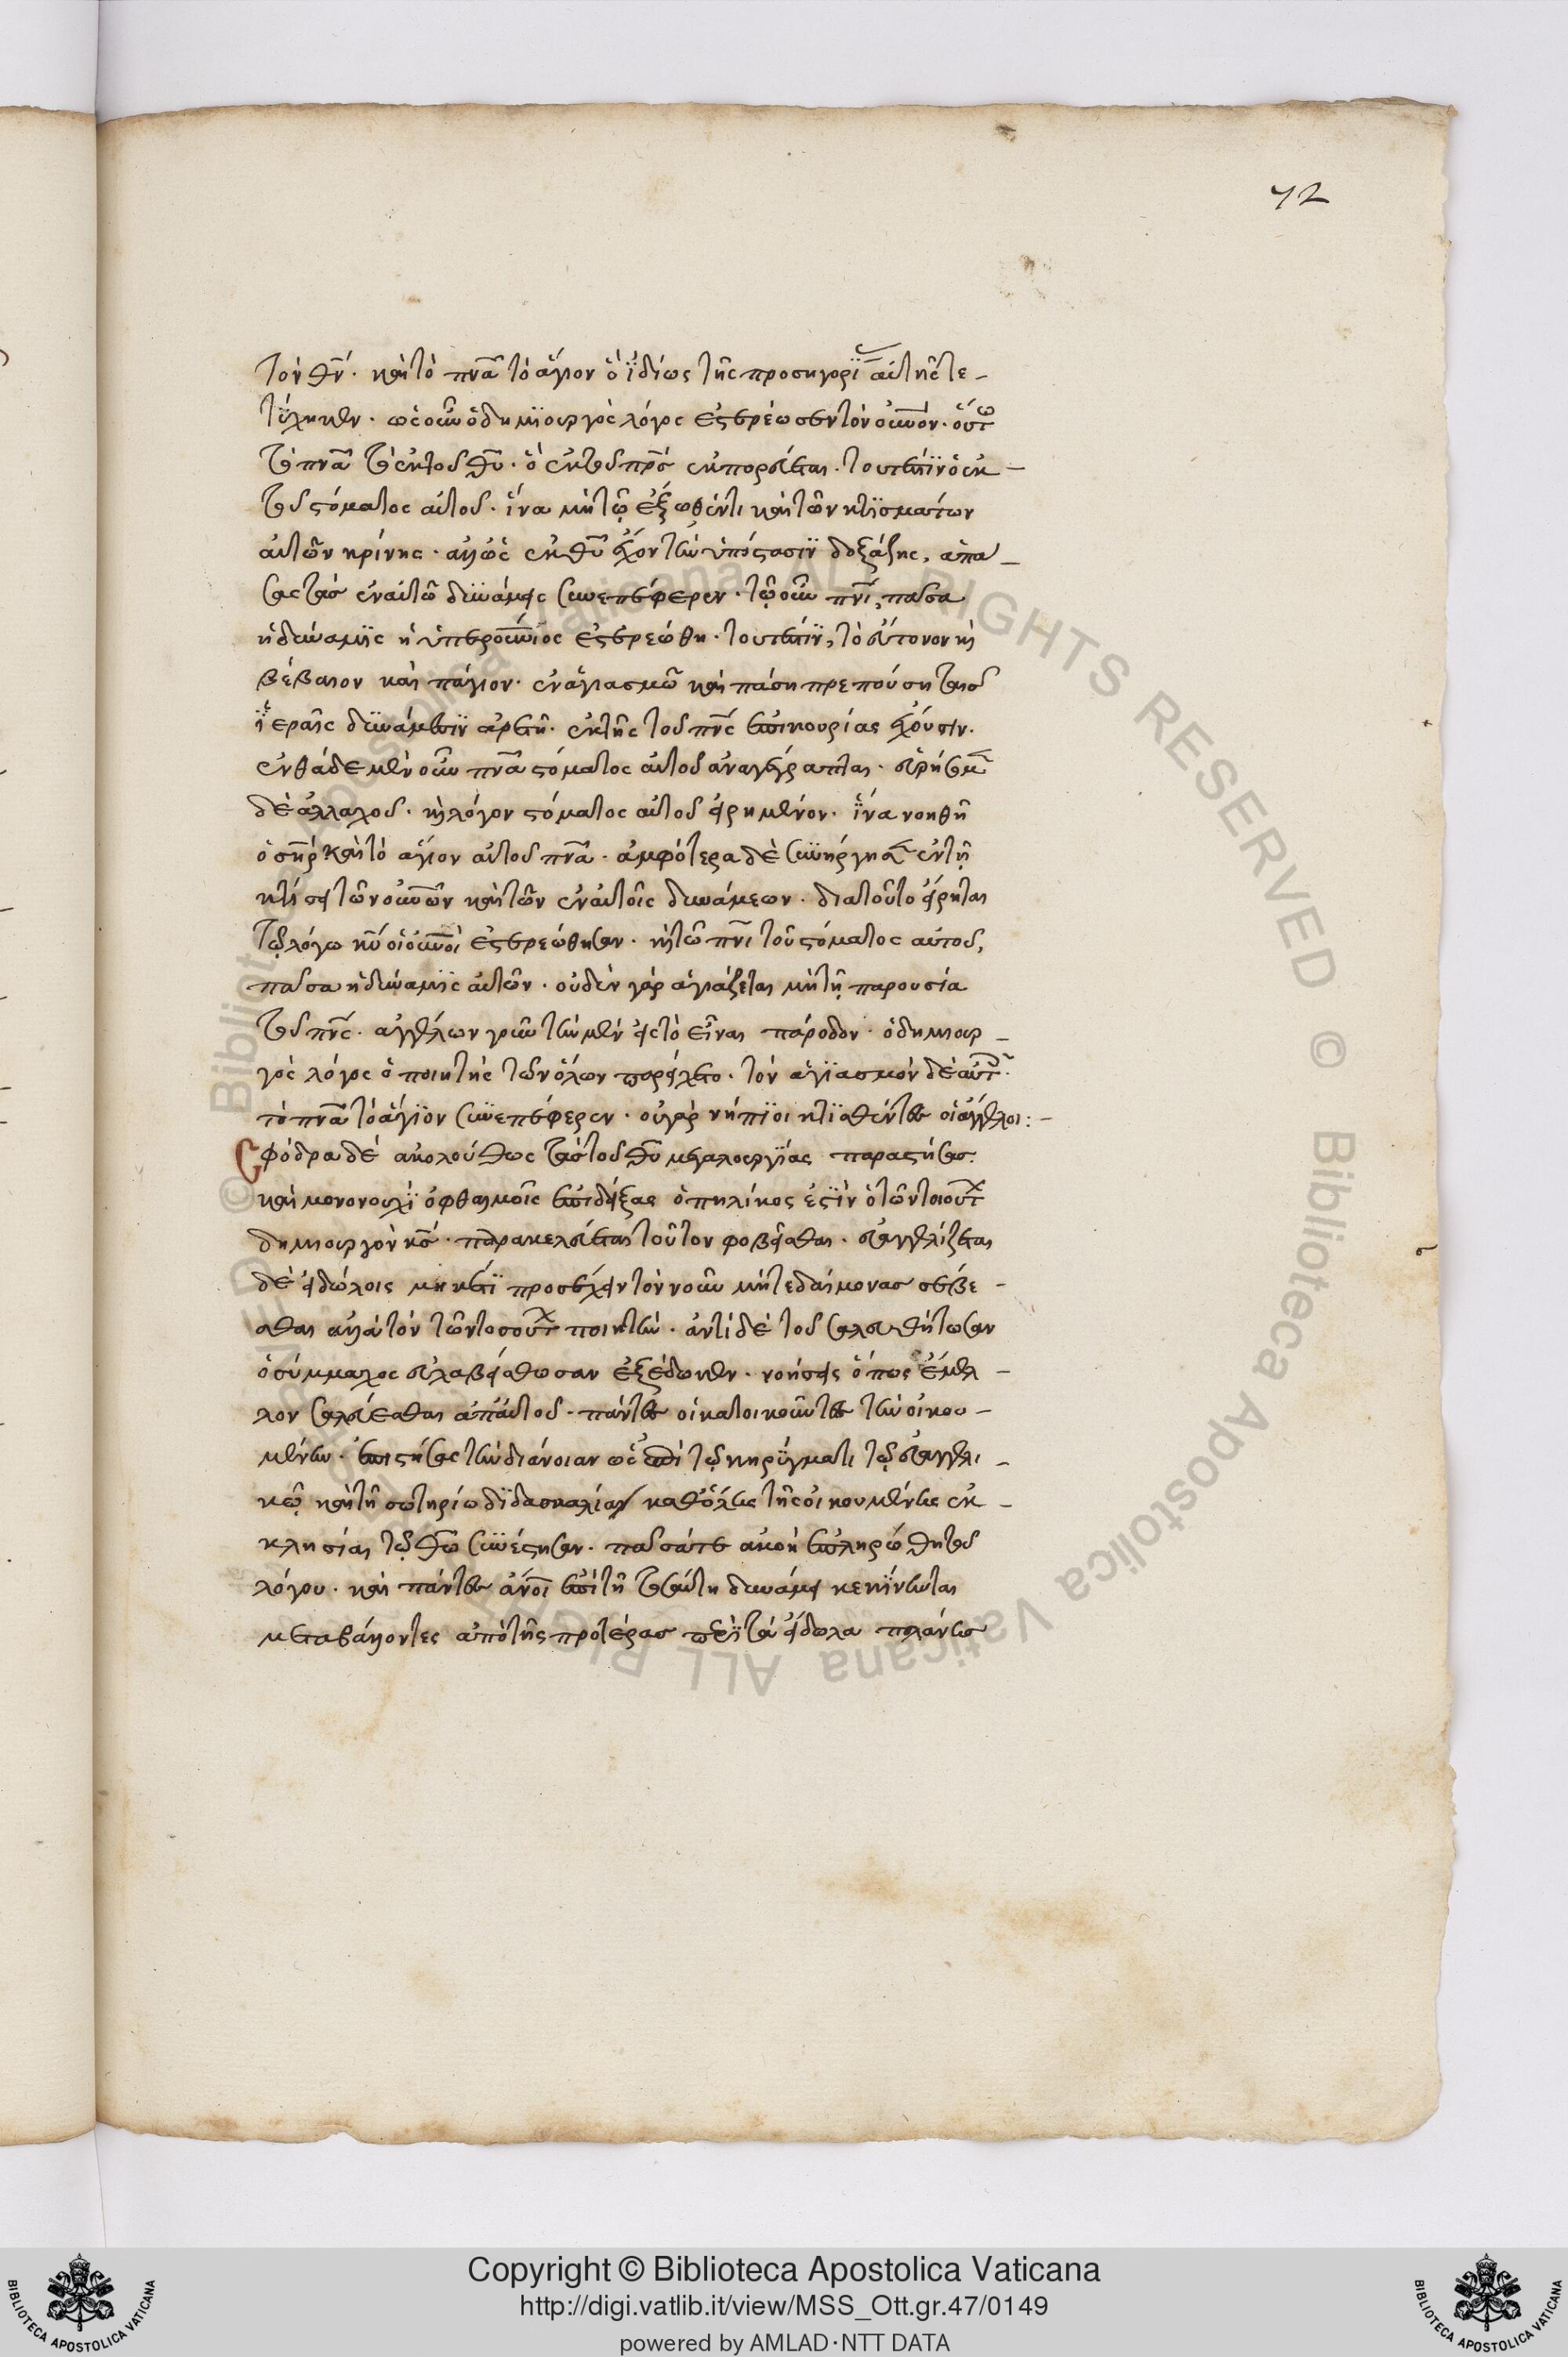 72
τὸν θν̅. καὶ τὸ πνα̅ τὸ ἅγιον ὃ ἰδίως τῆς προσηγορί αὐτῆς τε-
τύχηκεν. ὡς οὖν ὁ δημιουργὸς λόγος ἐστερέωσεν τὸν οὐνον. οὕτω
τὸ πνα̅ τὸ ἐκ τοῦ θυ̅. ὃ ἐκ τοῦ πρς̅ ἐκπορεύεται. τουτέστιν ὃ ἐκ-
τοῦ στόματος αὐτοῦ. ἵνα μὴ τῷ ἔξωθέν τι καὶ τῶν κτισμάτων
αὐτῶν κρίνης. ἀλλ' ὡς ἐκ θυ̅ ἔχον τὴν ὑπόστασιν δοξάζης, ἁπά-
σας τὰς ἐν αὐτῶ δυνάμεις συνεπέφερεν. τῷ οὖν πνι̅, πᾶσα
ἡ δύναμις ἡ ὑπερουνιος ἐστερεώθη. τουτέστιν, τὸ εὔτονον καὶ
βέβαιον καὶ πάγιον. ἐν ἁγιασμῶ καὶ πάση πρεπούση ταῖς
ἱεραῖς δυνάμεσιν ἀρετῆ. ἐκ τῆς τοῦ πνς̅ ἐπικουρίας ἔχουσιν.
ἐνθάδε μὲν οὖν πνα̅ στόματος αὐτοῦ ἀναγέγραπται. εὑρήσομ
δὲ ἀλλαχοῦ. καὶ λόγον στόματος αὐτοῦ εἰρημένον. ἵνα νοηθῆ
ὁ σηρ̅ καὶ τὸ ἅγιον αὐτοῦ πνα̅. ἀμφότερα δὲ συνήργησ ἐν τῇ
κτίσει τῶν οὐνῶν καὶ τῶν ἐν αὐτοῖς δυνάμεων. διατοῦτο εἴρηται
τῷ λόγω κυ̅ οἱ οὐνοὶ ἐστερεώθησαν. καὶ τῶ πνι̅ τοῦ στόματος αὐτοῦ,
πᾶσα ἡ δύναμις αὐτῶν. οὐδὲν γὰρ ἁγιάζεται μὴ τῇ παρουσία
τοῦ πνς̅. ἀγγέλων γοῦν τὴν μὲν εἰς τὸ εἶναι πάροδον. ὁ δημιουρ-
γὸς λόγος ὁ ποιητὴς τῶν ὅλων παρείχετο. τὸν ἁγιασμὸν δὲ αὐτ
τὸ πνα̅ τὸ ἅγιον συνεπέφερεν. οὐ γὰρ νήπιοι κτισθέντες οἱ ἄγγελοι:-
Σφόδρα δὲ ἀκολούθως τὰς τοῦ θυ̅ μεγαλουργίας παραστήσας.
καὶ μονονουχὶ ὀφθαλμοῖς ἐπιδείξας ὁπηλίκος ἐστὶν ὁ τῶν τοιούτ
δημιουργὸν κς̅. παρακελεύεται τοῦτον φοβεῖσθαι. εὐαγγελίζεται
δὲ εἰδώλοις μηκέτι προσέχειν τὸν νοῦν μήτε δαίμονας σέβε-
σθαι ἀλλὰ τὸν τῶν τοσούτ ποιητὴν. ἀντὶ δὲ τοῦ σαλευθήτωσαν
ὁ σύμμαχος εὐλαβείσθωσαν ἐξέδωκεν. νοήσεις ὅπως ἔμελ-
λον σαλεύεσθαι ἀπ' αὐτοῦ. πάντες οἱ κατοικοῦντες τὴν οἰκου-
μένην. ἐπιστήσας τὴν διάνοιαν ὡς ἐπὶ τῷ κηρύγματι τῷ εὐαγγελι-
κῶ καὶ τῆ σωτηρίω διδασκαλία καθ' ὅλης τῆς οἰκουμένης ἐκ-
κλησίαι τῷ θω̅ συνέστησαν. πᾶσά τε ἀκοὴ ἐπληρώθη τοῦ
λόγου. καὶ πάντες ἀνοι ἐπὶ τῆ τοσαύτη δυνάμει κεκίνηνται
μεταβάλλοντες ἀπὸ τῆς προτέρας περὶ τὰ εἴδωλα πλάνης
Copyright © Biblioteca Apostolica Vaticana
http://digi.vatlib.it/view/MSS_Ott.gr.47/0149
powered by AMLAD·NTT DATA